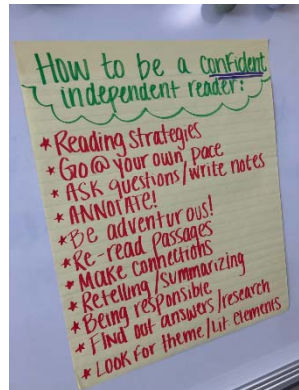 How to be a confident
independent reader:
* Reading Strategies
* Go @ your own pace
* ASK questions/write notes
* ANNOTATE!
* Be adventurous!
* Re-read Passages
* Make connections
* Retelling/summarizing
* Being responsible
* Find out answers/research
* LOOK FOR theme/Lit Elements